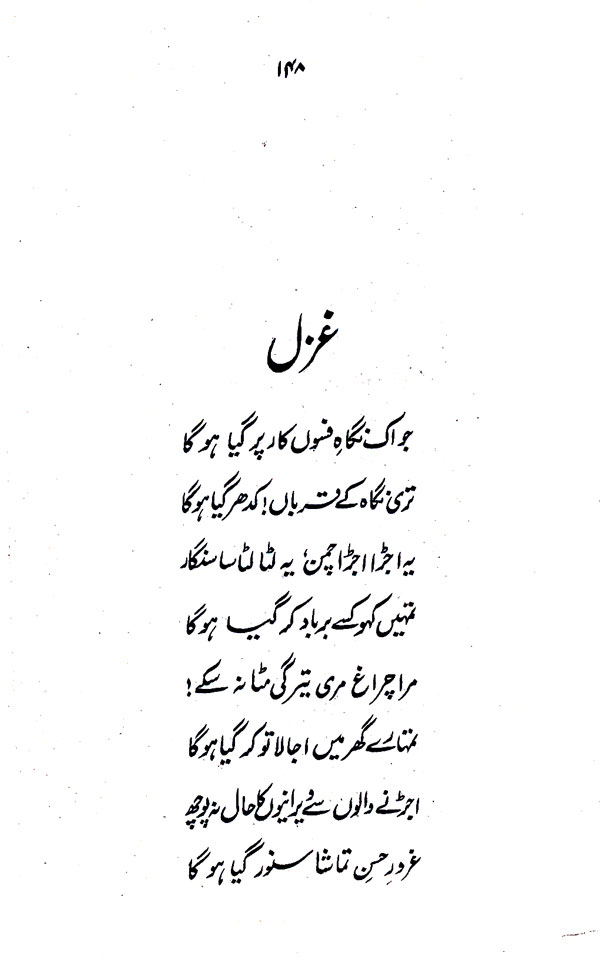 ۱۴۸
غزل
جو اک نگاہِ فسوں کار پر گیا ہوگا
تری نگاہ کے قرباں! کدھر گیا ہوگا
یہ اجڑا اجڑا چمن، یہ لٹا لٹا سا سنگار
تمہیں کہو کسے برباد کر گیا ہوگا
مرا چراغ مری تیرگی مٹا نہ سکے!
تمہارے گھر میں اجالا تو کر گیا ہوگا
اجڑنے والوں سے ویرانیوں کا حال نہ پوچھ
غرورِ حسنِ تماشا سنور گیا ہوگا